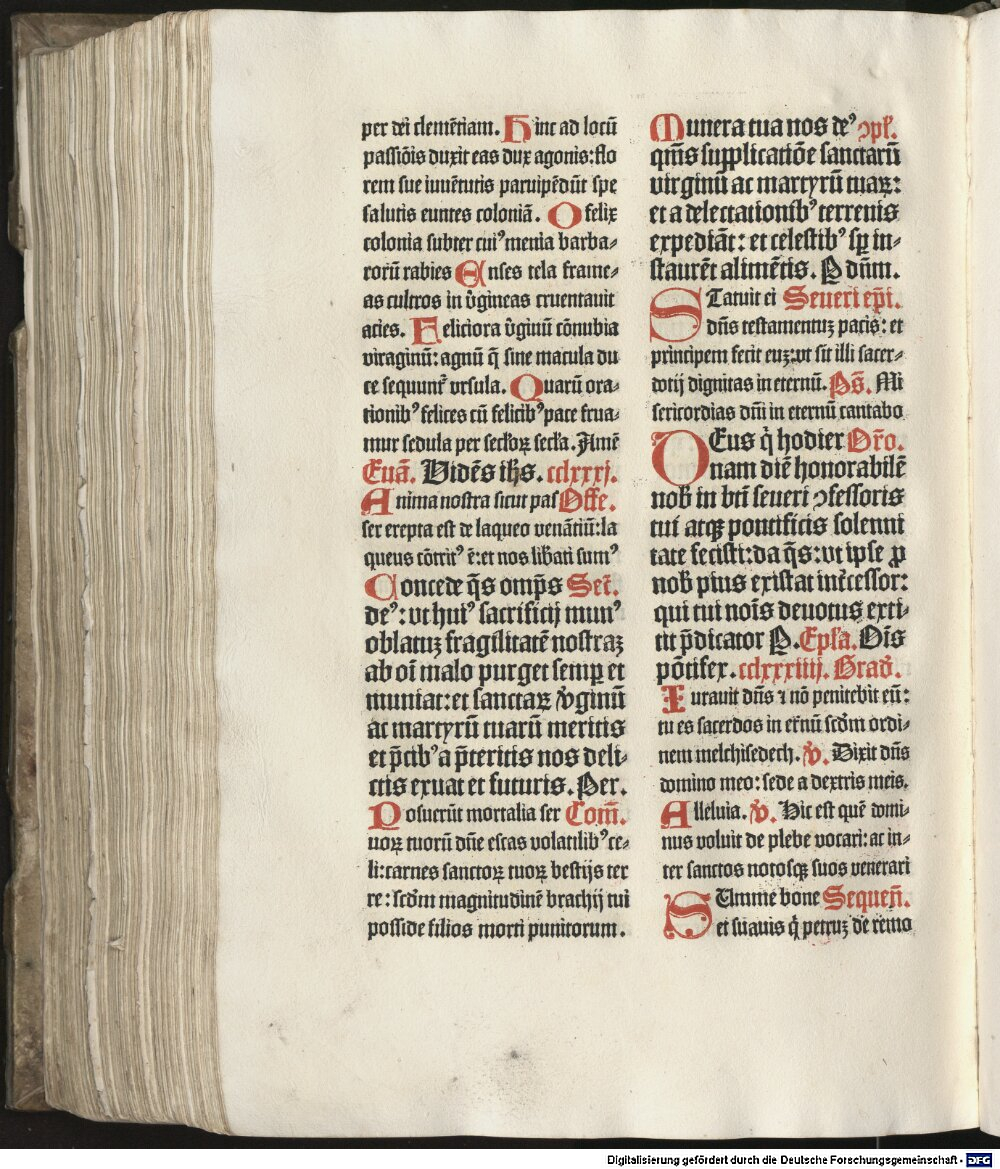 per dei clemẽtiam. Hinc ad locũ
passiõis duxit eas dux agonis: flo
rem sue iuuẽtutis paruipẽdũt spe
salutis euntes coloniã. O felix
colonia subter cuiꝰ menia barba-
rorũ rabies Enses tela frame-
as cultros in v̓gineas cruentauit
acies. Feliciora v̓ginũ cõnubia
viraginũ: agnũ q̃ sine macula du
ce sequunt᷑ vrsula. Quarũ ora-
tionibꝰ felices cũ felicibꝰ pace frua-
mur sedula per secl'oꝝ secl'a. Amẽ
Euã. Vidẽs ih̃s. cclxxxj.
Anima nostra sicut pas Offe.
ser erepta est de laqueo venãtiũ: la
queus cõtritꝰ ẽ: et nos lib̓ati sumꝰ
Concede q̃s omp̃s Secr̃.
deꝰ: vt huiꝰ sacrificij munꝰ
oblatuꝫ fragilitatẽ nostraꝫ
ab oĩ malo purget semꝑ et
muniat: et sanctaꝝ v̓ginũ
ac martyrũ tuarũ meritis
et p̃cibꝰ a p̃teritis nos deli-
ctis exuat et futuris. Per.
Posuerũt mortalia ser Com̃.
uoꝝ tuorũ dñe escas volatilibꝰ ce-
li: carnes sanctoꝝ tuoꝝ bestijs ter
re: scd̃m magnitudinẽ brachij tui
posside filios morti punitorum.
Munera tua nos deꝰ ↄpl'.
qm̃s supplicatiõe sanctarũ
virginũ ac martyrũ tuaꝝ:
et a delectationibꝰ terrenis
expediãt: et celestibꝰ sꝑ in-
staurẽt alimẽtis. P dñm.
STatuit ei Seueri ep̃i.
dñs testamentuꝫ pacis: et
principem fecit euꝫ: vt sit illi sacer-
dotij dignitas in eternũ. Ps̃. Mi
sericordias dñi in eternũ cantabo
DEus q̓ hodier Or̃o.
nam diẽ honorabilẽ
nob̓ in bt̃i seueri ↄfessoris
tui atqꝫ pontificis solenni
tate fecisti: da q̃s: vt ipse ꝓ
nob̓ pius existat int̓cessor:
qui tui noĩs deuotus exti-
tit p̃dicator P. Epl'a. Oĩs
põtifex. cclxxxiiij. Grad̓.
Iurauit dñs ⁊ nõ penitebit eũ:
tu es sacerdos in et̓nũ scd̃m ordi-
nem melchisedech. v̓. Dixit dñs
domino meo: sede a dextris meis.
Alleluia. v̓. Hic est quẽ domi-
nus voluit de plebe vocari: ac in-
ter sanctos notosqꝫ suos venerari
SUmme bone Sequeñ.
et suauis q̓ petruꝫ de remo
Digitalisierung gefördert durch die Deutsche Forschungsgemeinschaft - DFG